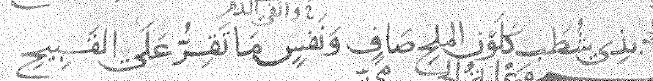 بِذِي شُطَبٍ كَلَوْنِ الملحِ صَافٍ وَنَفْسٍ مَا تَقِرُّ عَلَى القَبِيحِ